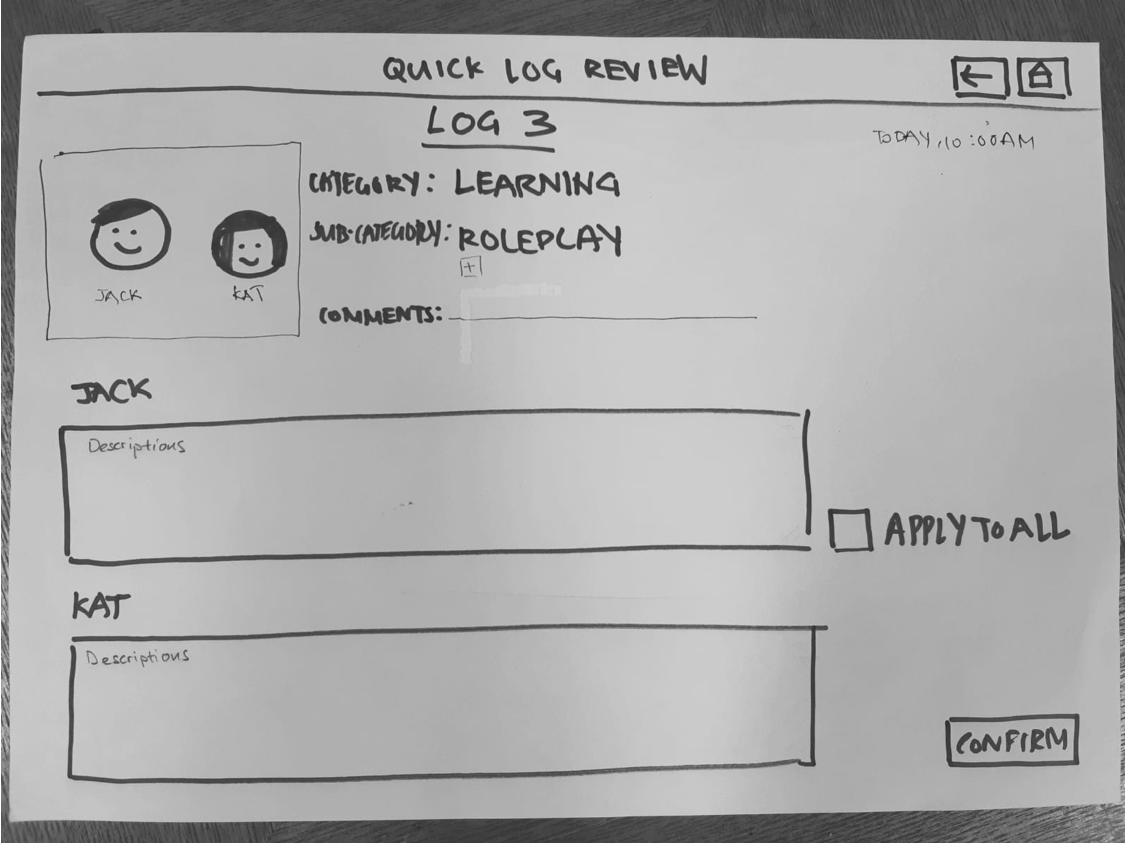 QUICK LOG REVIEW
LOG 3
TODAY, 10:00AM
CATEGORY: LEARNING
SUB-CATEGORY: ROLEPLAY
+
JACK KAT
COMMENTS:
JACK
Descriptions
APPLY TO ALL
KAT
Descriptions
CONFIRM